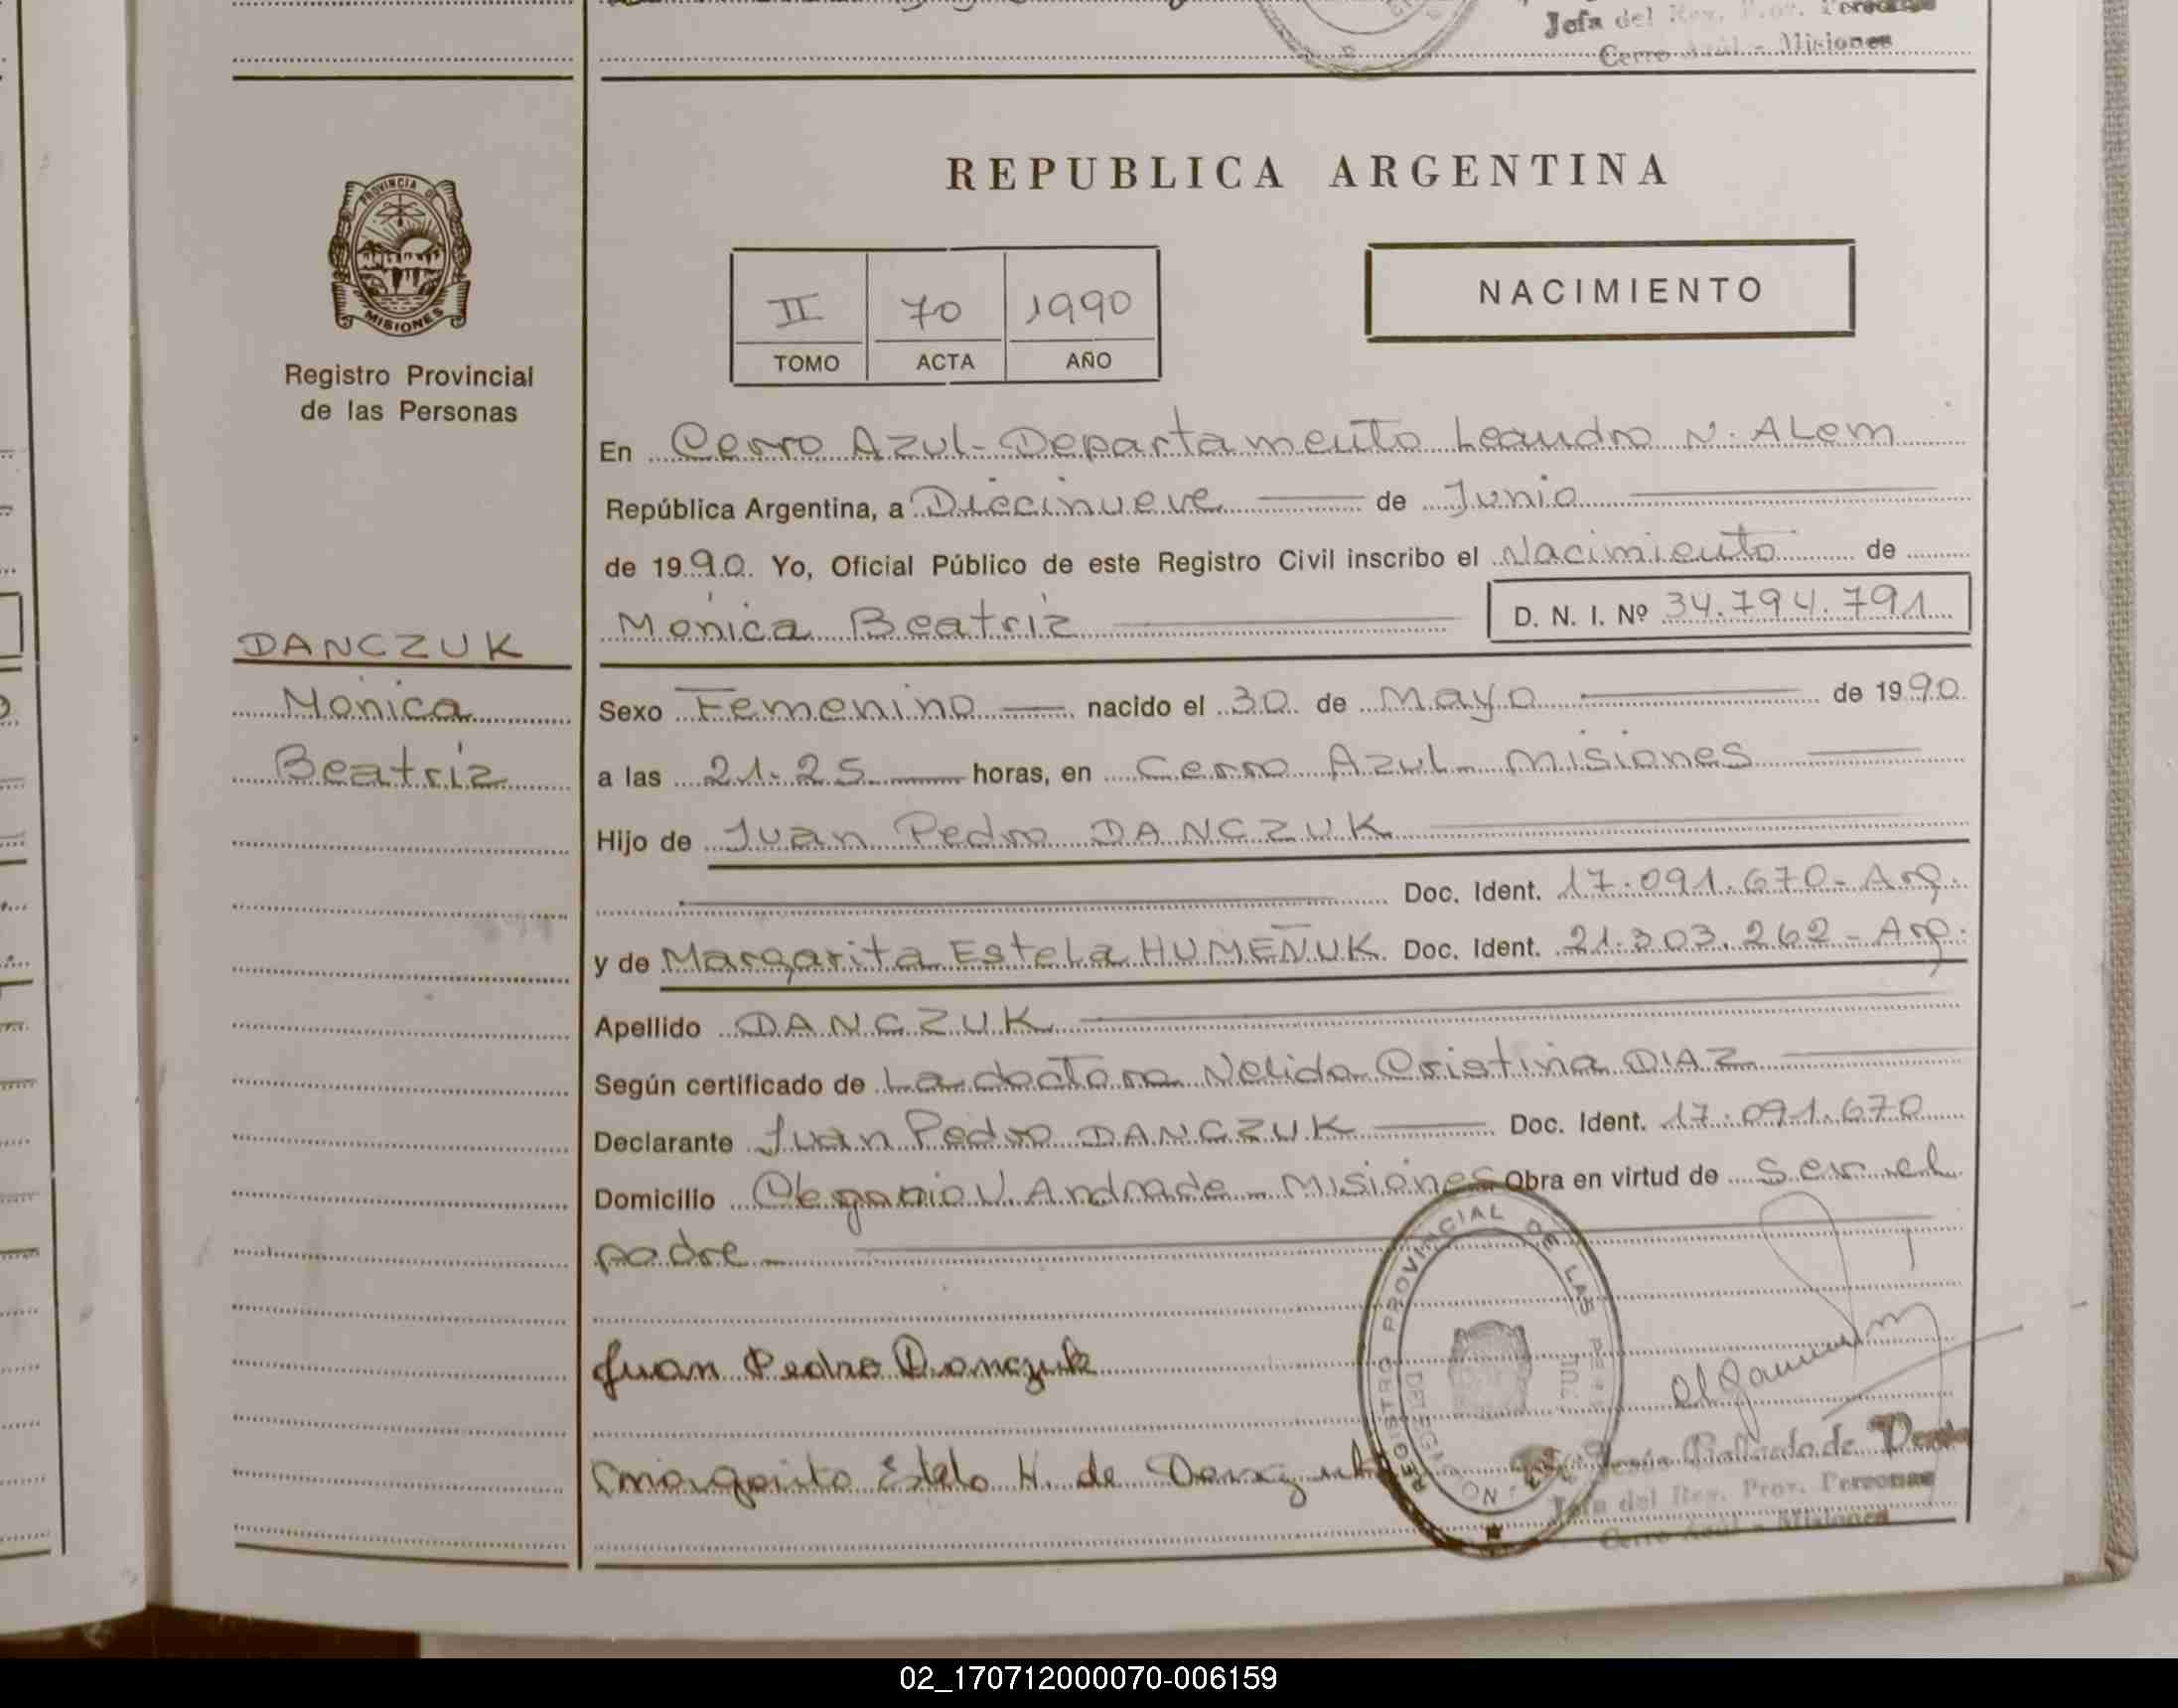 Jefa del Reg. Prov. Personas
Cerro Azul - Misiones
PROVINCIA DE
MISIONES
Registro Provincial
de las Personas
REPUBLICA ARGENTINA
II 70 1990
TOMO ACTA AÑO
NACIMIENTO
En Cerro Azul - Departamento Leandro N. Alem
República Argentina, a Diecinueve de Junio
de 1990. Yo, Oficial Público de este Registro Civil inscribo el Nacimiento de
Mónica Beatriz D. N. I. Nº 34.794.791
DANCZUK
Mónica
Beatriz
Sexo Femenino nacido el 30 de Mayo de 1990
a las 21.25 horas, en Cerro Azul - Misiones
Hijo de Juan Pedro DANCZUK
Doc. Ident. 17.091.670 - Arg.
y de Margarita Estela HUMEÑUK Doc. Ident. 21.303.262 - Arg.
Apellido DANCZUK
Según certificado de La doctora Nelida Cristina DIAZ
Declarante Juan Pedro DANCZUK Doc. Ident. 17.091.670
Domicilio Olegario V. Andrade - Misiones Obra en virtud de ser el
padre
Juan Pedro Danczuk
Margarita Estela H. de Danczuk
REGISTRO PROVINCIAL DE LAS
DELEGACION
Jesús Gallardo de
Jefa del Reg. Prov. Personas
Cerro Azul - Misiones
02_170712000070-006159